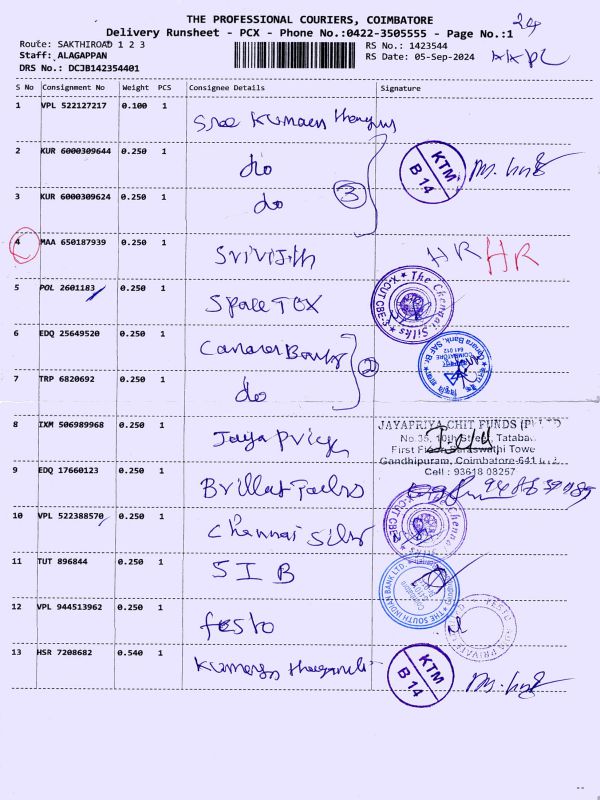 THE PROFESSIONAL COURIERS, COIMBATORE
24
Delivery Runsheet - PCX - Phone No.:0422-3505555 - Page No.:1
Route: SAKTHIROAD 1 2 3
RS No.: 1423544
Staff: ALAGAPPAN
RS Date: 05-Sep-2024
DRS No.: DCJB142354401
S No Consignment No Weight PCS Consignee Details Signature
1 VPL 522127217 0.100 1 Sree Kumaran
2 KUR 6000309644 0.250 1 do
KTM
B 14
3 KUR 6000309624 0.250 1 do 3
4 MAA 650187939 0.250 1 Srivijith HR HR
5 POL 2601183 0.250 1 Space TEX The Chennai Silks
6 EDQ 25649520 0.250 1 Canara Bank 2
7 TRP 6820692 0.250 1 do
8 IXM 506989968 0.250 1 Jaya Priya
JAYAPRIYA CHIT FUNDS
No.35, 10th Street, Tatabad
First Floor, Saraswathi Towe
Gandhipuram, Coimbatore-641
Cell : 93618 08257
9 EDQ 17660123 0.250 1
10 VPL 522388570 0.250 1 Chennai Silks
11 TUT 896844 0.250 1 SIB THE SOUTH INDIAN BANK LTD.
12 VPL 944513962 0.250 1 festo
13 HSR 7208682 0.540 1
KTM
B 14